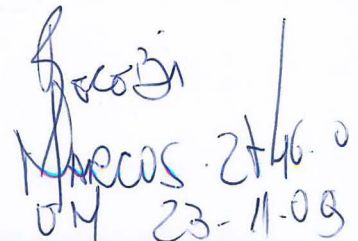 Recebi
MARCOS. 2746.0
EM 23-11-09